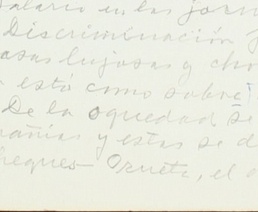 salario en las jorn
Discriminación
casas lujosas y cho
está como sobre
De la oquedad se
y estas se d
el